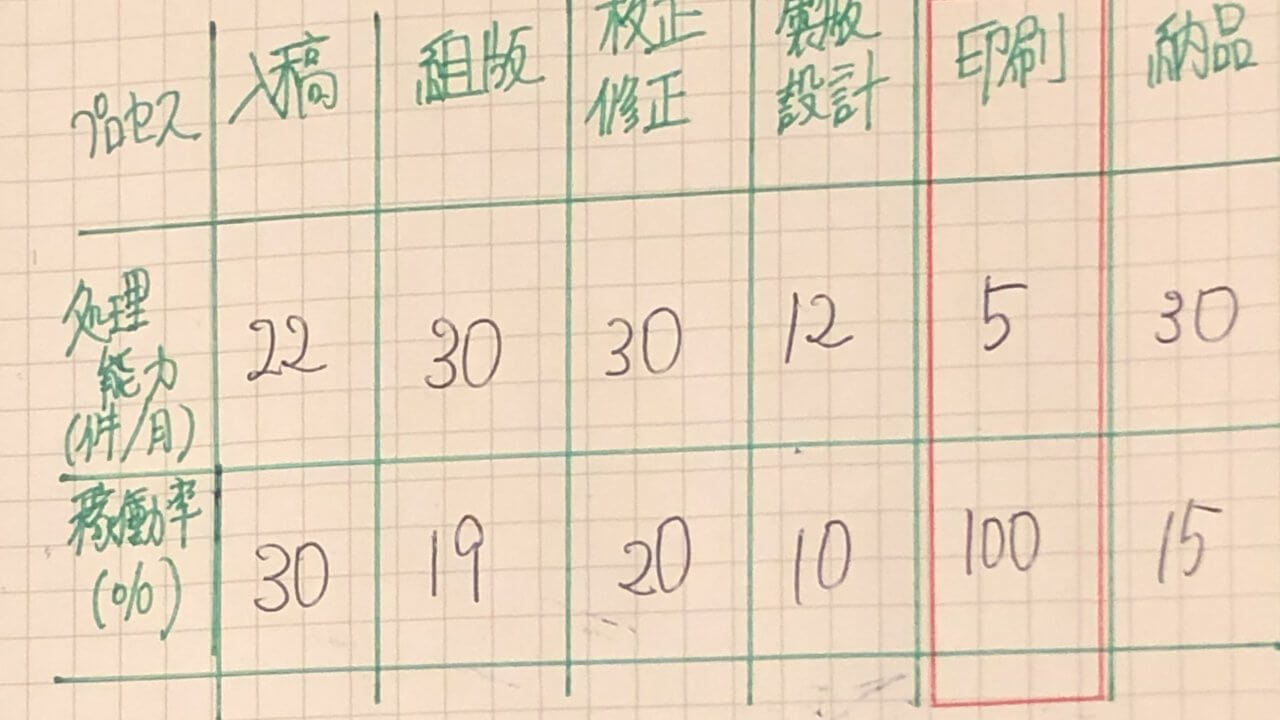 プロセス 入稿 組版 校正 製版 印刷 納品
修正 設計
処理 22 30 30 12 5 30
能力
(件/月)
稼働率 30 19 20 10 100 15
(%)